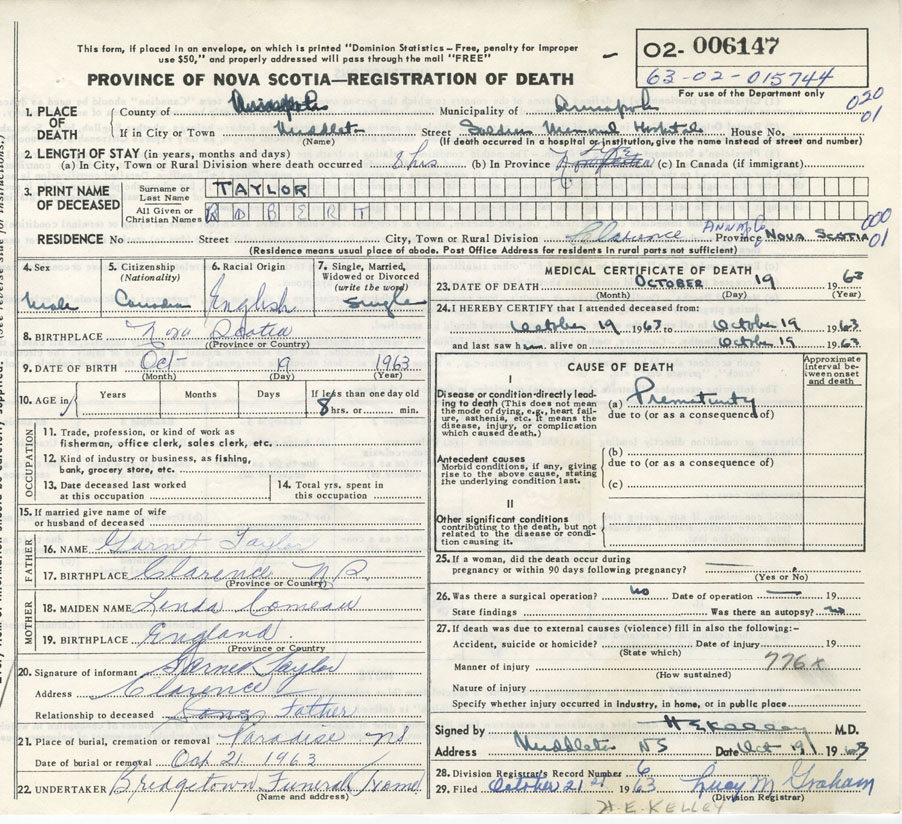 This form, if placed in an envelope, on which is printed "Dominion Statistics – Free, penalty for improper
use $50," and properly addressed will pass through the mail "FREE"
O2- 006147
63-02-015744
For use of the Department only
PROVINCE OF NOVA SCOTIA—REGISTRATION OF DEATH
020
01
1. PLACE OF DEATH
County of Annapolis Municipality of Annapolis
If in City or Town Middleton Street Soldiers Memorial Hospital House No.
(Name) (If death occurred in a hospital or institution, give the name instead of street and number)
2. LENGTH OF STAY (in years, months and days)
(a) In City, Town or Rural Division where death occurred 8 hrs. (b) In Province (c) In Canada (if immigrant)
3. PRINT NAME OF DECEASED
Surname or Last Name TAYLOR
All Given or Christian Names ROBERT
000
01
RESIDENCE No Street City, Town or Rural Division Clarence ANNAP. Co. Province NOVA SCOTIA
(Residence means usual place of abode. Post Office Address for residents in rural parts not sufficient)
4. Sex Male
5. Citizenship (Nationality) Canadian
6. Racial Origin English
7. Single, Married, Widowed or Divorced (write the word) Single
8. BIRTHPLACE Nova Scotia
(Province or Country)
9. DATE OF BIRTH Oct- 19 1963
(Month) (Day) (Year)
10. AGE in Years Months Days If less than one day old
8 hrs. or min.
OCCUPATION
11. Trade, profession or kind of work as
fisherman, office clerk, sales clerk, etc.
12. Kind of industry or business, as fishing,
bank, grocery store, etc.
13. Date deceased last worked
at this occupation
14. Total yrs. spent in
this occupation
15. If married give name of wife
or husband of deceased
FATHER
16. NAME Garnet Taylor
17. BIRTHPLACE Clarence N.S.
(Province or Country)
MOTHER
18. MAIDEN NAME Linda Comeau
19. BIRTHPLACE England
(Province or Country)
20. Signature of informant Garnet Taylor
Address Clarence
Relationship to deceased Father
21. Place of burial, cremation or removal Paradise NS
Date of burial or removal Oct 21 1963
22. UNDERTAKER Bridgetown Funeral Home
(Name and address)
MEDICAL CERTIFICATE OF DEATH
23. DATE OF DEATH OCTOBER 19 1963
(Month) (Day) (Year)
24. I HEREBY CERTIFY that I attended deceased from:
October 19 1963 to October 19 1963
and last saw him alive on October 19 1963
CAUSE OF DEATH
Approximate
interval between
onset
and death
I
Disease or condition directly leading
to death (This does not mean
the mode of dying, e.g., heart failure,
asthenia, etc. It means the
disease, injury, or complication
which caused death.)
(a) Prematurity
due to (or as a consequence of)
Antecedent causes
Morbid conditions, if any, giving
rise to the above cause, stating
the underlying condition last.
(b)
due to (or as a consequence of)
(c)
II
Other significant conditions
contributing to the death, but not
related to the disease or condition
causing it.
25. If a woman, did the death occur during
pregnancy or within 90 days following pregnancy?
(Yes or No)
26. Was there a surgical operation? no Date of operation — 19
State findings Was there an autopsy? no
27. If death was due to external causes (violence) fill in also the following:–
Accident, suicide or homicide? Date of injury 19
(State which)
776x
Manner of injury
(How sustained)
Nature of injury
Specify whether injury occurred in industry, in home, or in public place
Signed by H E Kelley M.D.
Address Middleton NS Date Oct 19 1963
28. Division Registrar's Record Number 6
29. Filed October 21st 1963 Lucy M Graham
(Division Registrar)
H.E. KELLEY